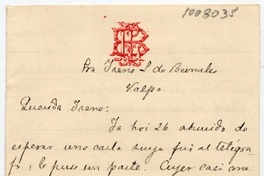 1008035
Sra Irene L. de Bernales
Valpo
Querida Irene:
Ya hoi 26 aburrido de
esperar una carta suya fui al telégra
fo i le puse un parte. Ayer casi me